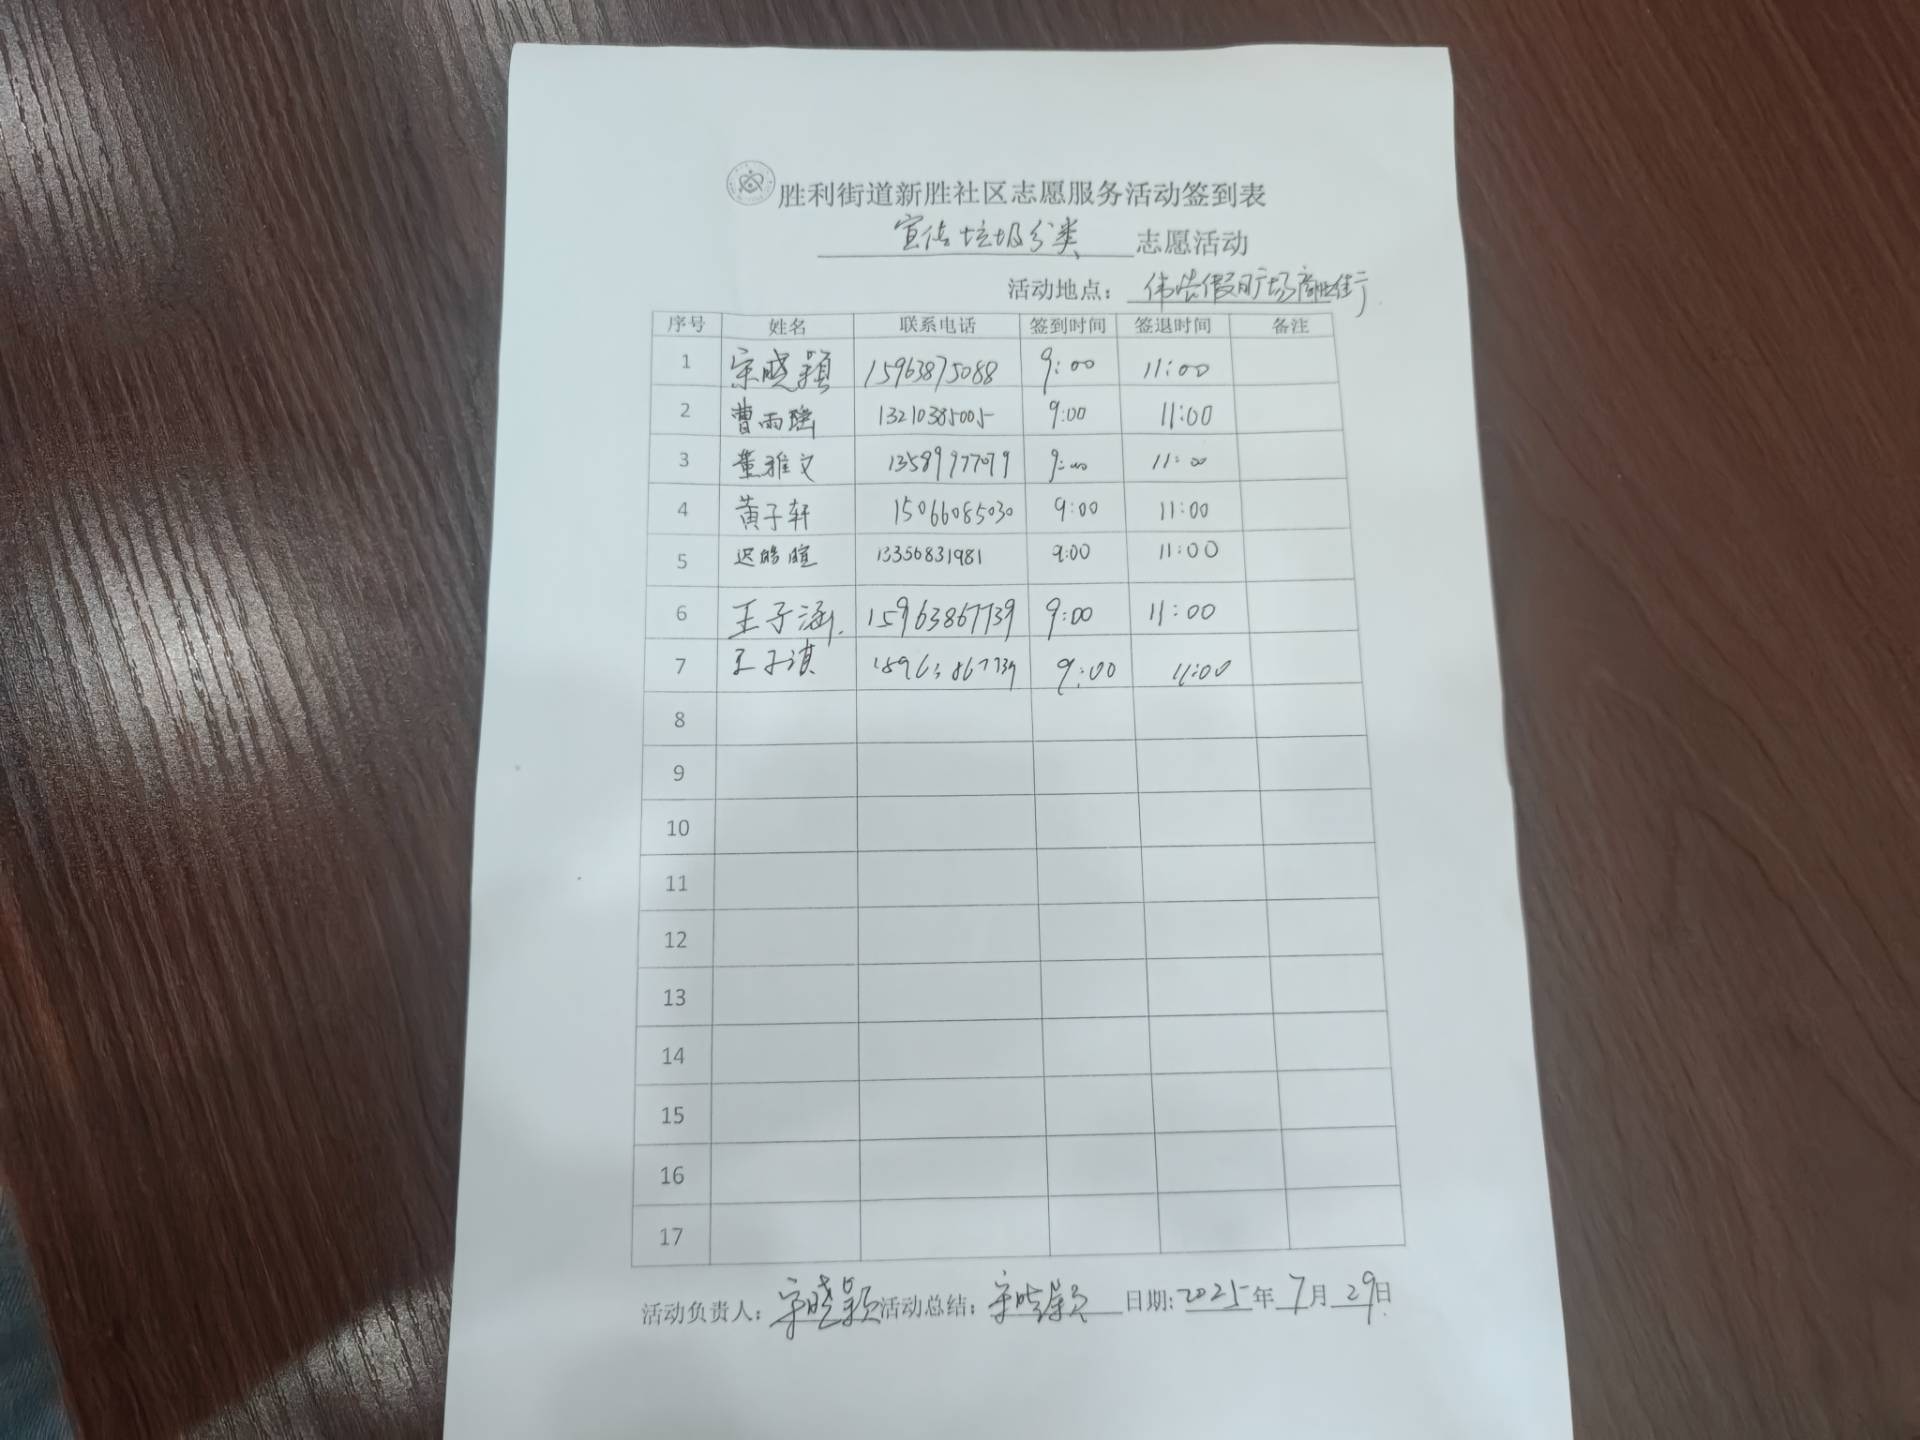 胜利街道新胜社区志愿服务活动签到表
宣传垃圾分类 志愿活动
活动地点： 伟浩假日广场商业街
序号 姓名 联系电话 签到时间 签退时间 备注
1 宋晓颖 15963875088 9:00 11:00
2 曹雨瑶 13210385005 9:00 11:00
3 董雅文 13589977079 9:00 11:00
4 黄子轩 15066085030 9:00 11:00
5 迟皓暄 13356831981 9:00 11:00
6 王子涵. 15963867739 9:00 11:00
7 王子淇 18963867739 9:00 11:00
8
9
10
11
12
13
14
15
16
17
活动负责人：宋晓颖 活动总结：宋晓颖 日期:2025年7月29日